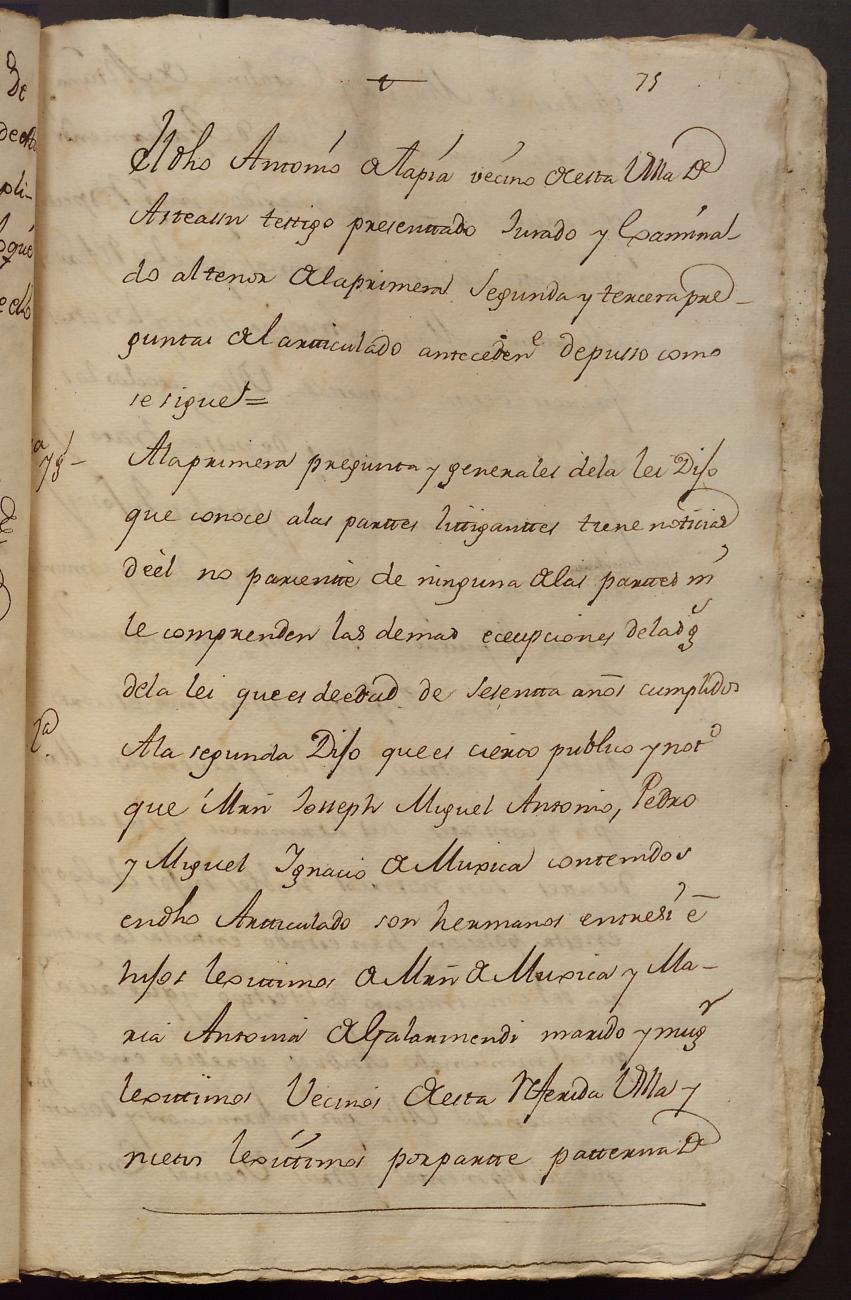 75
El dho Antonio de Tapia vecino de esta Villa De
Asteassu testigo presenttado Jurado y Examina-
do al tenor de la primera Segunda y tercera pre-
guntas del artticulado anteceden^e depusso como
se sigue=
A la primera pregunta y generales de la lei Dijo
que conoce a las parttes littiganttes tiene noticias
deèl no parientte de ninguna de las parttes ni
le comprenden las demas ecepciones de la
de la lei que es de edad de Sesentta años cumplidos
2ª
A la segunda Dijo que es cierto publico y not^o
que Mrñ Josseph Miguel Antonio, Pedro
y Miguel Ignacio de Muxica contenidos
en dho Artticulado son hermanos entresi è
hijos lexittimos de Mrñ de Muxica y Ma-
ria Antonia de Galarmendi marido y mug^r
lexittimos Vecinos de esta Referida Villa y
nietos lexittimos por partte patterna De